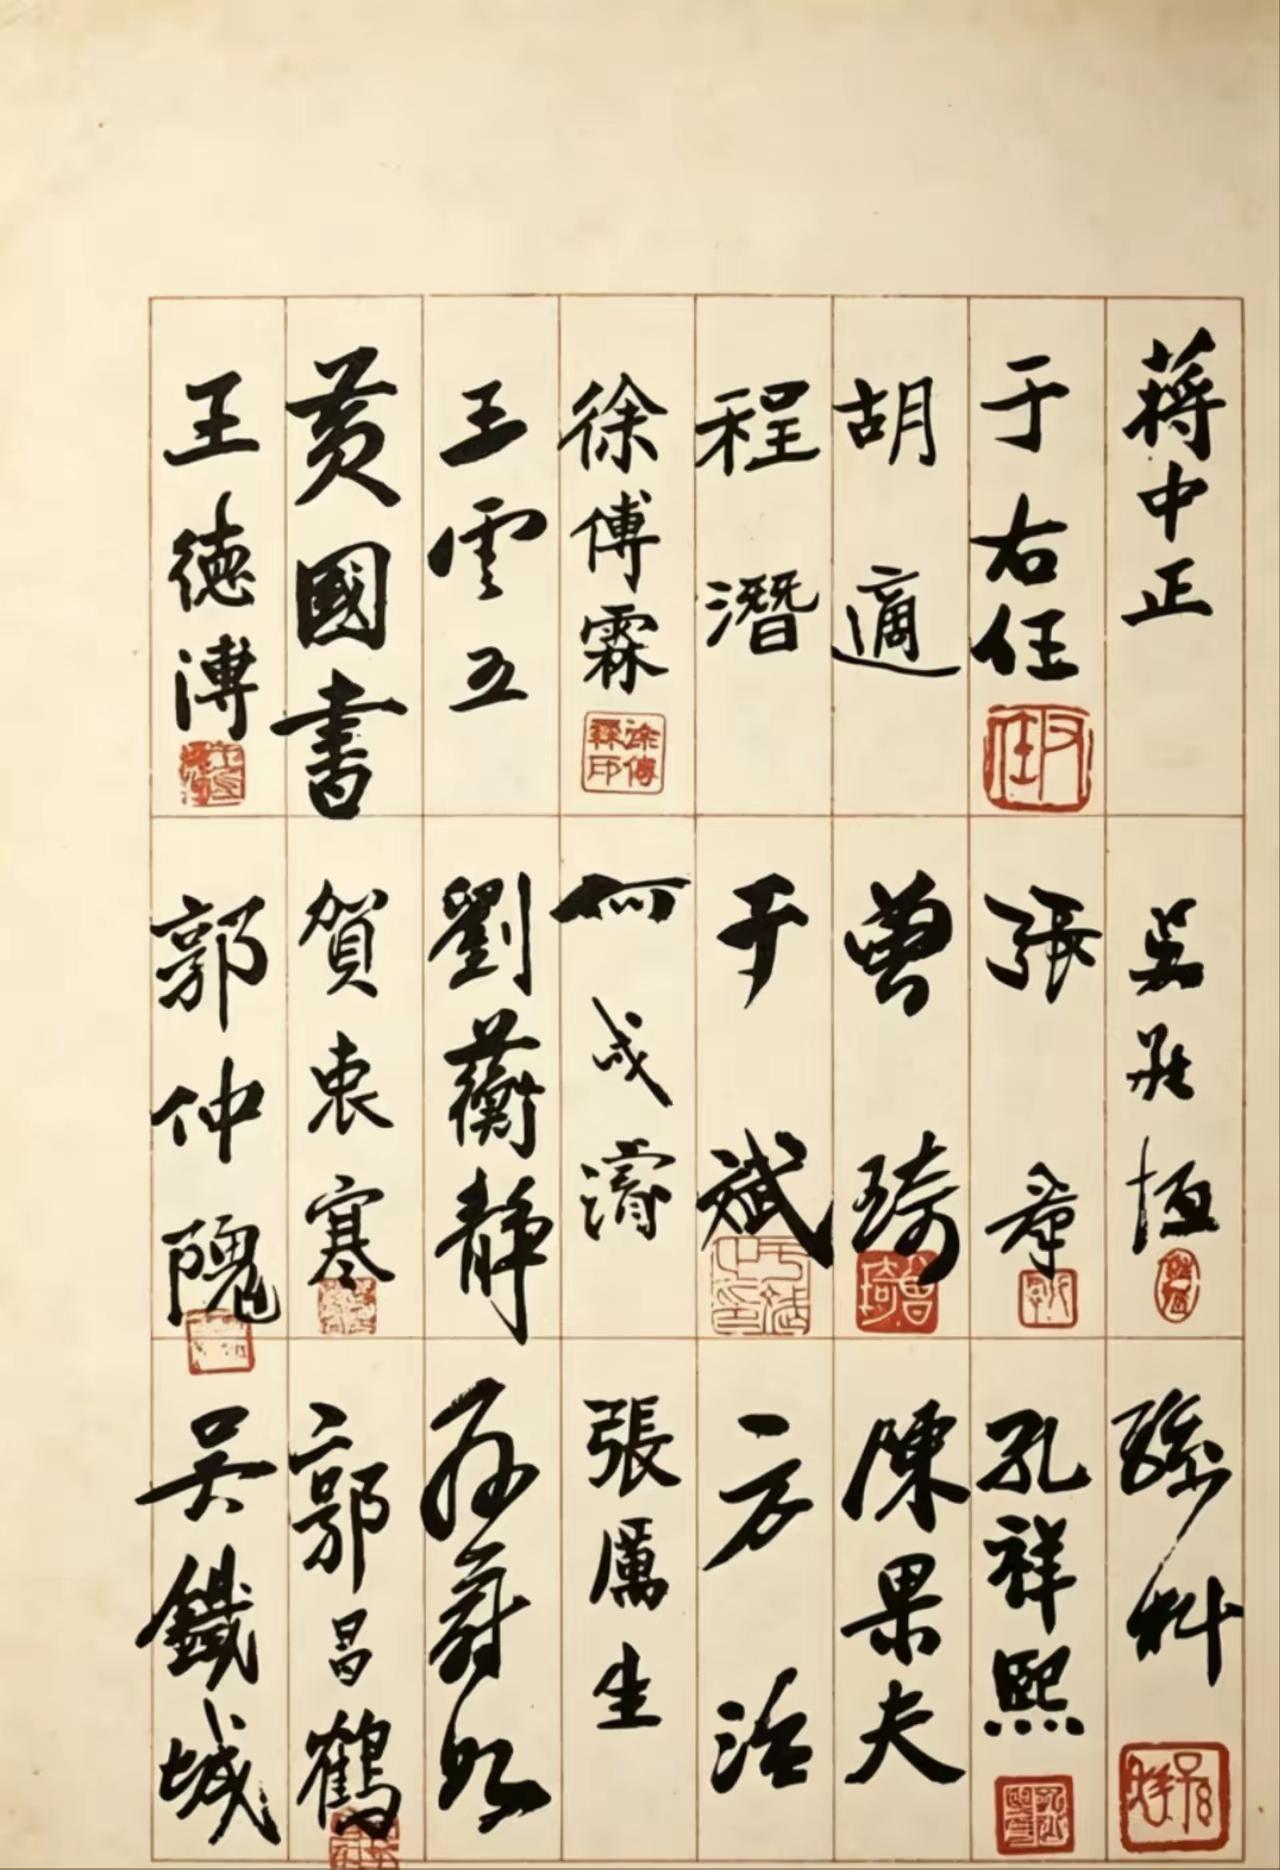 蔣中正
于右任
右任
胡適
程潛
徐傅霖
徐傅霖印
王雲五
黃國書
王德溥
吳敬恒
張羣
曾琦
曾琦
于斌
何成濬
劉蘅靜
賀衷寒
郭仲隗
孫科
孔祥熙
陳果夫
方治
張厲生
孫蔚如
郭昌鶴
吳鐵城